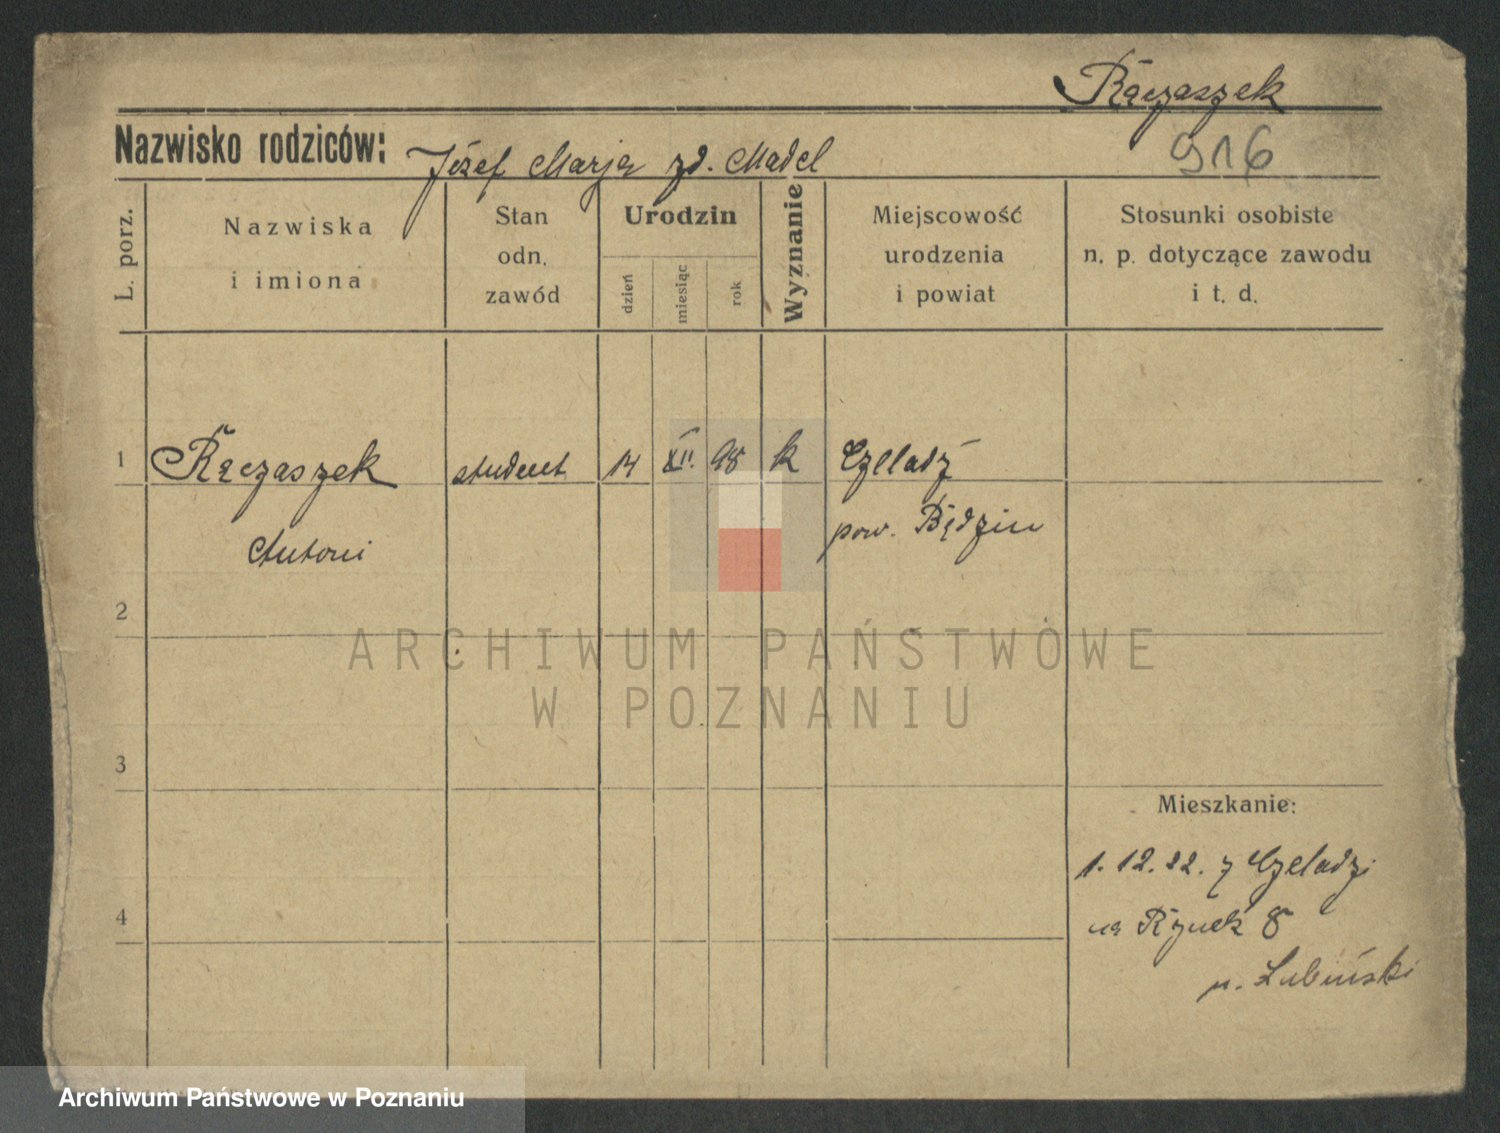 Rączaszek
Nazwisko rodziców: Józef Marja zd. Madel
916
L. porz.
Nazwiska
i imiona
Stan
odn.
zawód
Urodzin
dzień
miesiąc
rok
Wyznanie
Miejscowość
urodzenia
i powiat
Stosunki osobiste
n. p. dotyczące zawodu
i t. d.
1 Rączaszek student 14 XII. 98 k Czeladź
Antoni pow. Będzin
2
ARCHIWUM PAŃSTWOWE
W POZNANIU
3
Mieszkanie:
1. 12. 22. z Czeladzi
4
na Rynek 8
u. Lubiński
Archiwum Państwowe w Poznaniu